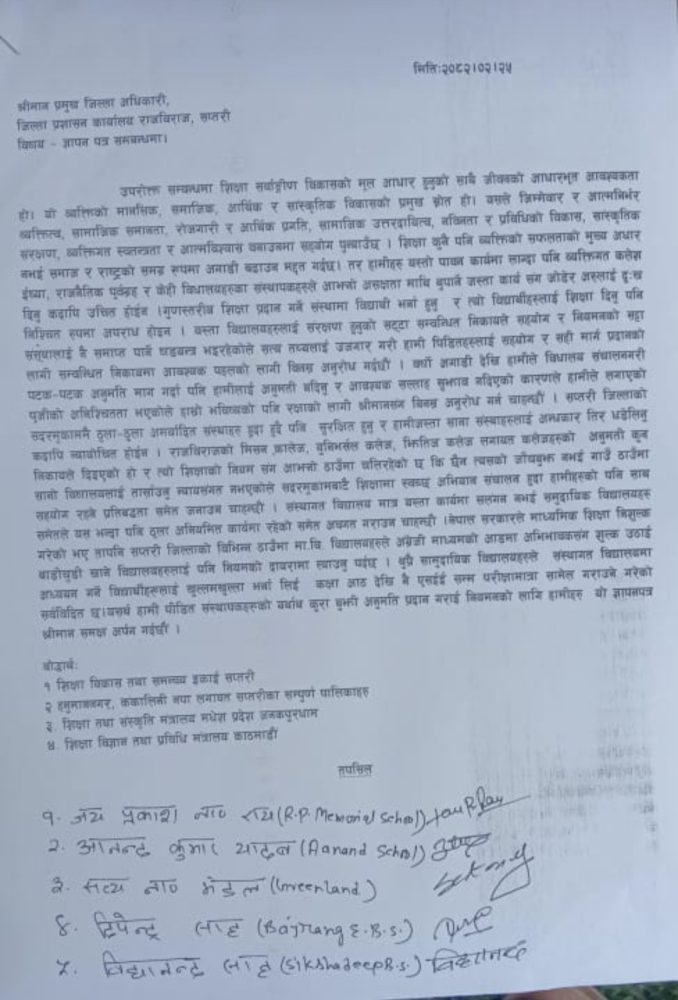 मितिः२०८२।०२।२५
श्रीमान प्रमुख जिल्ला अधिकारी,
जिल्ला प्रशासन कार्यालय राजविराज, सप्तरी
विषय - ज्ञापन पत्र सम्बन्धमा।
उपरोक्त सम्बन्धमा शिक्षा सर्वाङ्गीण विकासको मूल आधार हुनुको साथै जीवनको आधारभूत आवश्यकता
हो। यो व्यक्तिको मानसिक, समाजिक, आर्थिक र सांस्कृतिक विकासको प्रमुख स्रोत हो। यसले जिम्मेवार र आत्मनिर्भर
व्यक्तित्व, सामाजिक समानता, रोजगारी र आर्थिक प्रगति, सामाजिक उत्तरदायित्व, नविनता र प्रविधिको विकास, सांस्कृतिक
संरक्षण, व्यक्तिगत स्वतन्त्रता र आत्मविश्वास बनाउनमा सहयोग पुर्‍याउँछ । शिक्षा कुनै पनि व्यक्तिको सफलताको मुख्य अधार
नभई समाज र राष्ट्रको समग्र रूपमा अगाडी बढाउन मद्दत गर्दछ। तर हामीहरु यस्तो पावन कार्यमा लाग्दा पनि व्यक्तिगत कलेश
ईर्ष्या, राजनैतिक पूर्वग्रह र केही विद्यालयहरुका संस्थापकहरुले आफ्नो असक्षता माथि बुपाने जस्ता कार्य संग जोडेर अरुलाई दुःख
दिनु कदापि उचित होईन ।गुणस्तरीय शिक्षा प्रदान गर्ने संस्थामा विद्यार्थी भर्ना हुनु र त्यो विद्यार्थीहरुलाई शिक्षा दिनु पनि
निश्चित रुपमा अपराध होइन । यस्ता विद्यालयहरुलाई संरक्षण हुनुको सट्टा सम्बन्धित निकायले सहयोग र नियमनको सट्टा
संस्थालाई नै समाप्त पार्ने षडयन्त्र भइरहेकोले सत्य तथ्यलाई उजागर गरी हामी पिडितहरुलाई सहयोग र सही मार्ग प्रदानको
लागी सम्बन्धित निकायमा आवश्यक पहलको लागी विनम्र अनुरोध गर्दछौं । वर्षौ अगाडी देखि हामीले विद्यालय संचालनगरी
पटक-पटक अनुमति माग गर्दा पनि हामीलाई अनुमती नदिनु र आवश्यक सल्लाह सुझाव नदिएको कारणले हामीले लगाएको
पूजीको अनिश्चितता भएकोले हाम्रो भविष्यको पनि रक्षाको लागी श्रीमानसंग विनम्र अनुरोध गर्न चाहन्छौं । सप्तरी जिल्लाको
सदरमुकाममै ठुला-ठुला अमर्यादित संस्थाहरु हुदा हुदै पनि सुरक्षित हुनु र हामीजस्ता साना संस्थाहरुलाई अन्धकार तिर धकेलिनु
कदापि न्यायोचित होईन । राजविराजको मिसन कलेज, युनिभर्सल कलेज, क्षितिज कलेज लगायत कलेजहरुको अनुमती कुन
निकायले दिइएको हो र त्यो शिक्षाको नियम संग आफ्नो ठाउँमा चलिरहेको छ कि छैन त्यसको जाँचबुझ नभई गाउँ ठाउँमा
सानो विद्यालयलाई तार्साउनु न्यायसंगत नभएकोले सदरमुकामबाटै शिक्षामा स्वच्छ अभियान संचालन हुदा हामीहरुको पनि साथ
सहयोग रहने प्रतिबद्धता समेत जनाउन चाहन्छौं । संस्थागत विद्यालय मात्र यस्ता कार्यमा संलगन नभई समुदायिक विद्यालयहरु
समेतले यस भन्दा पनि ठूला अनियमित कार्यमा रहेको समेत अवगत गराउन चाहन्छौं ।नेपाल सरकारले माध्यमिक शिक्षा निशुल्क
गरेको भए तापनि सप्तरी जिल्लाको विभिन्न ठाउँमा मा.वि. विद्यालयहरुले अंग्रेजी माध्यमको आडमा अभिभावकसंग शुल्क उठाई
बाडीचुडी खाने विद्यालयहरुलाई पनि नियमको दायरामा ल्याउनु पर्दछ । थुप्रै सामुदायिक विद्यालयहरुले संस्थागत विद्यालयमा
अध्ययन गर्ने विद्यार्थीहरुलाई खुल्लमखुल्ला भर्ना लिई कक्षा आठ देखि नै एसईई सम्म परीक्षामात्रा सामेल गराउने गरेको
सर्वविदित छ।यसर्थ हामी पीडित संस्थापकहरुको यर्थाथ कुरा बुझी अनुमति प्रदान गराई नियमनको लागि हामीहरु यो ज्ञापनपत्र
श्रीमान समक्ष अर्पन गर्दछौं ।
बोद्धार्थः
१ शिक्षा विकास तथा समन्वय इकाई सप्तरी
२ हनुमाननगर, कंकालिनी नपा लगायत सप्तरीका सम्पुर्ण पालिकाहरु
३. शिक्षा तथा संस्कृति मन्त्रालय मधेश प्रदेश जनकपुरधाम
४. शिक्षा विज्ञान तथा प्रविधि मन्त्रालय काठमाडौं
तपसिल
१. जय प्रकाश ना० राय (R.P. Memorial School)
२. आनन्द कुमार यादव (Aanand School)
३. सत्य ना० मंडल (Greenland)
४. दिपेन्द्र साह (Bajrang E.B.S.)
५. विद्यानन्द साह (SikshadeepB.S.) विद्यानन्द